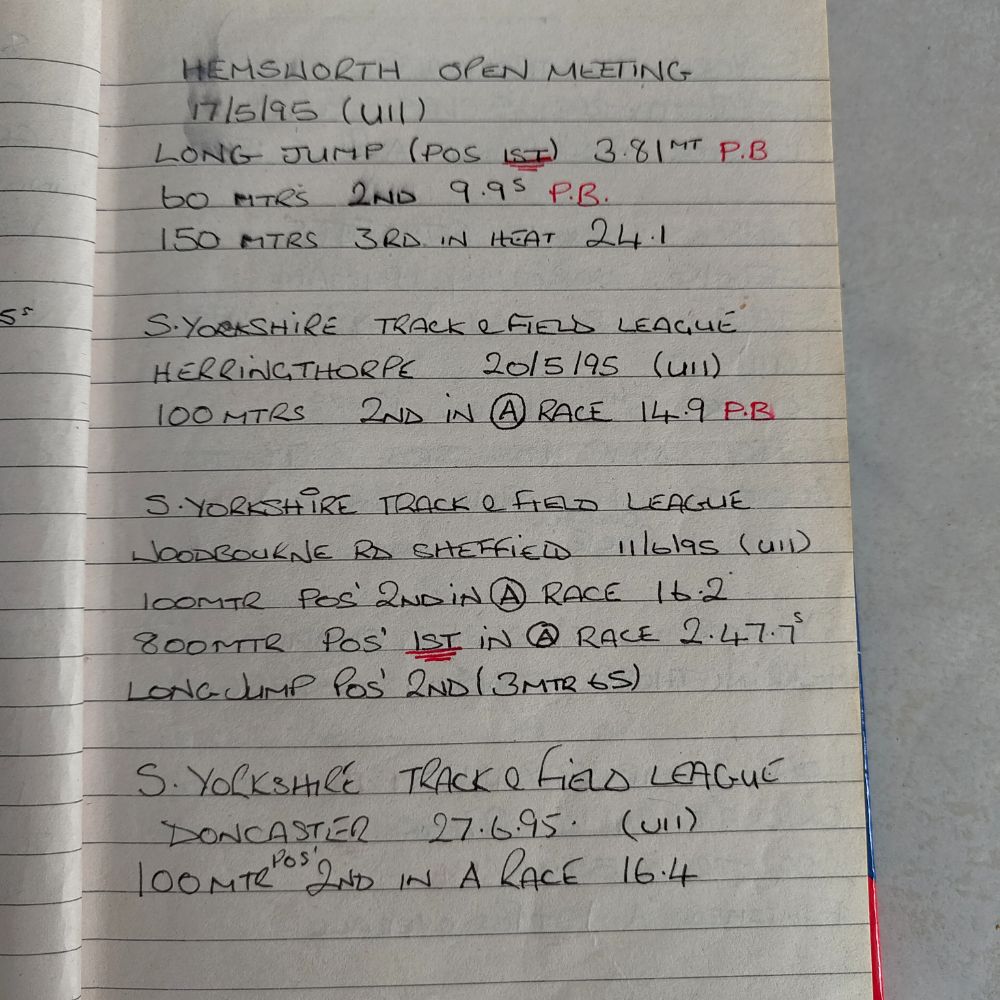 HEMSWORTH OPEN MEETING
17/5/95 (U11)
LONG JUMP (POS 1ST) 3.81MT P.B
60 MTRS 2ND 9.9S P.B.
150 MTRS 3RD IN HEAT 24.1
5s
S.YORKSHIRE TRACK & FIELD LEAGUE
HERRINGTHORPE 20/5/95 (U11)
100 MTRS 2ND IN A RACE 14.9 P.B
S.YORKSHIRE TRACK & FIELD LEAGUE
WOODBOURNE RD SHEFFIELD 11/6/95 (U11)
100MTR POS' 2ND IN A RACE 16.2
800MTR POS' 1ST IN A RACE 2.47.7s
LONG JUMP POS' 2ND (3MTR 65)
S. YORKSHIRE TRACK & FIELD LEAGUE
DONCASTER 27.6.95. (U11)
100MTR POS' 2ND IN A RACE 16.4